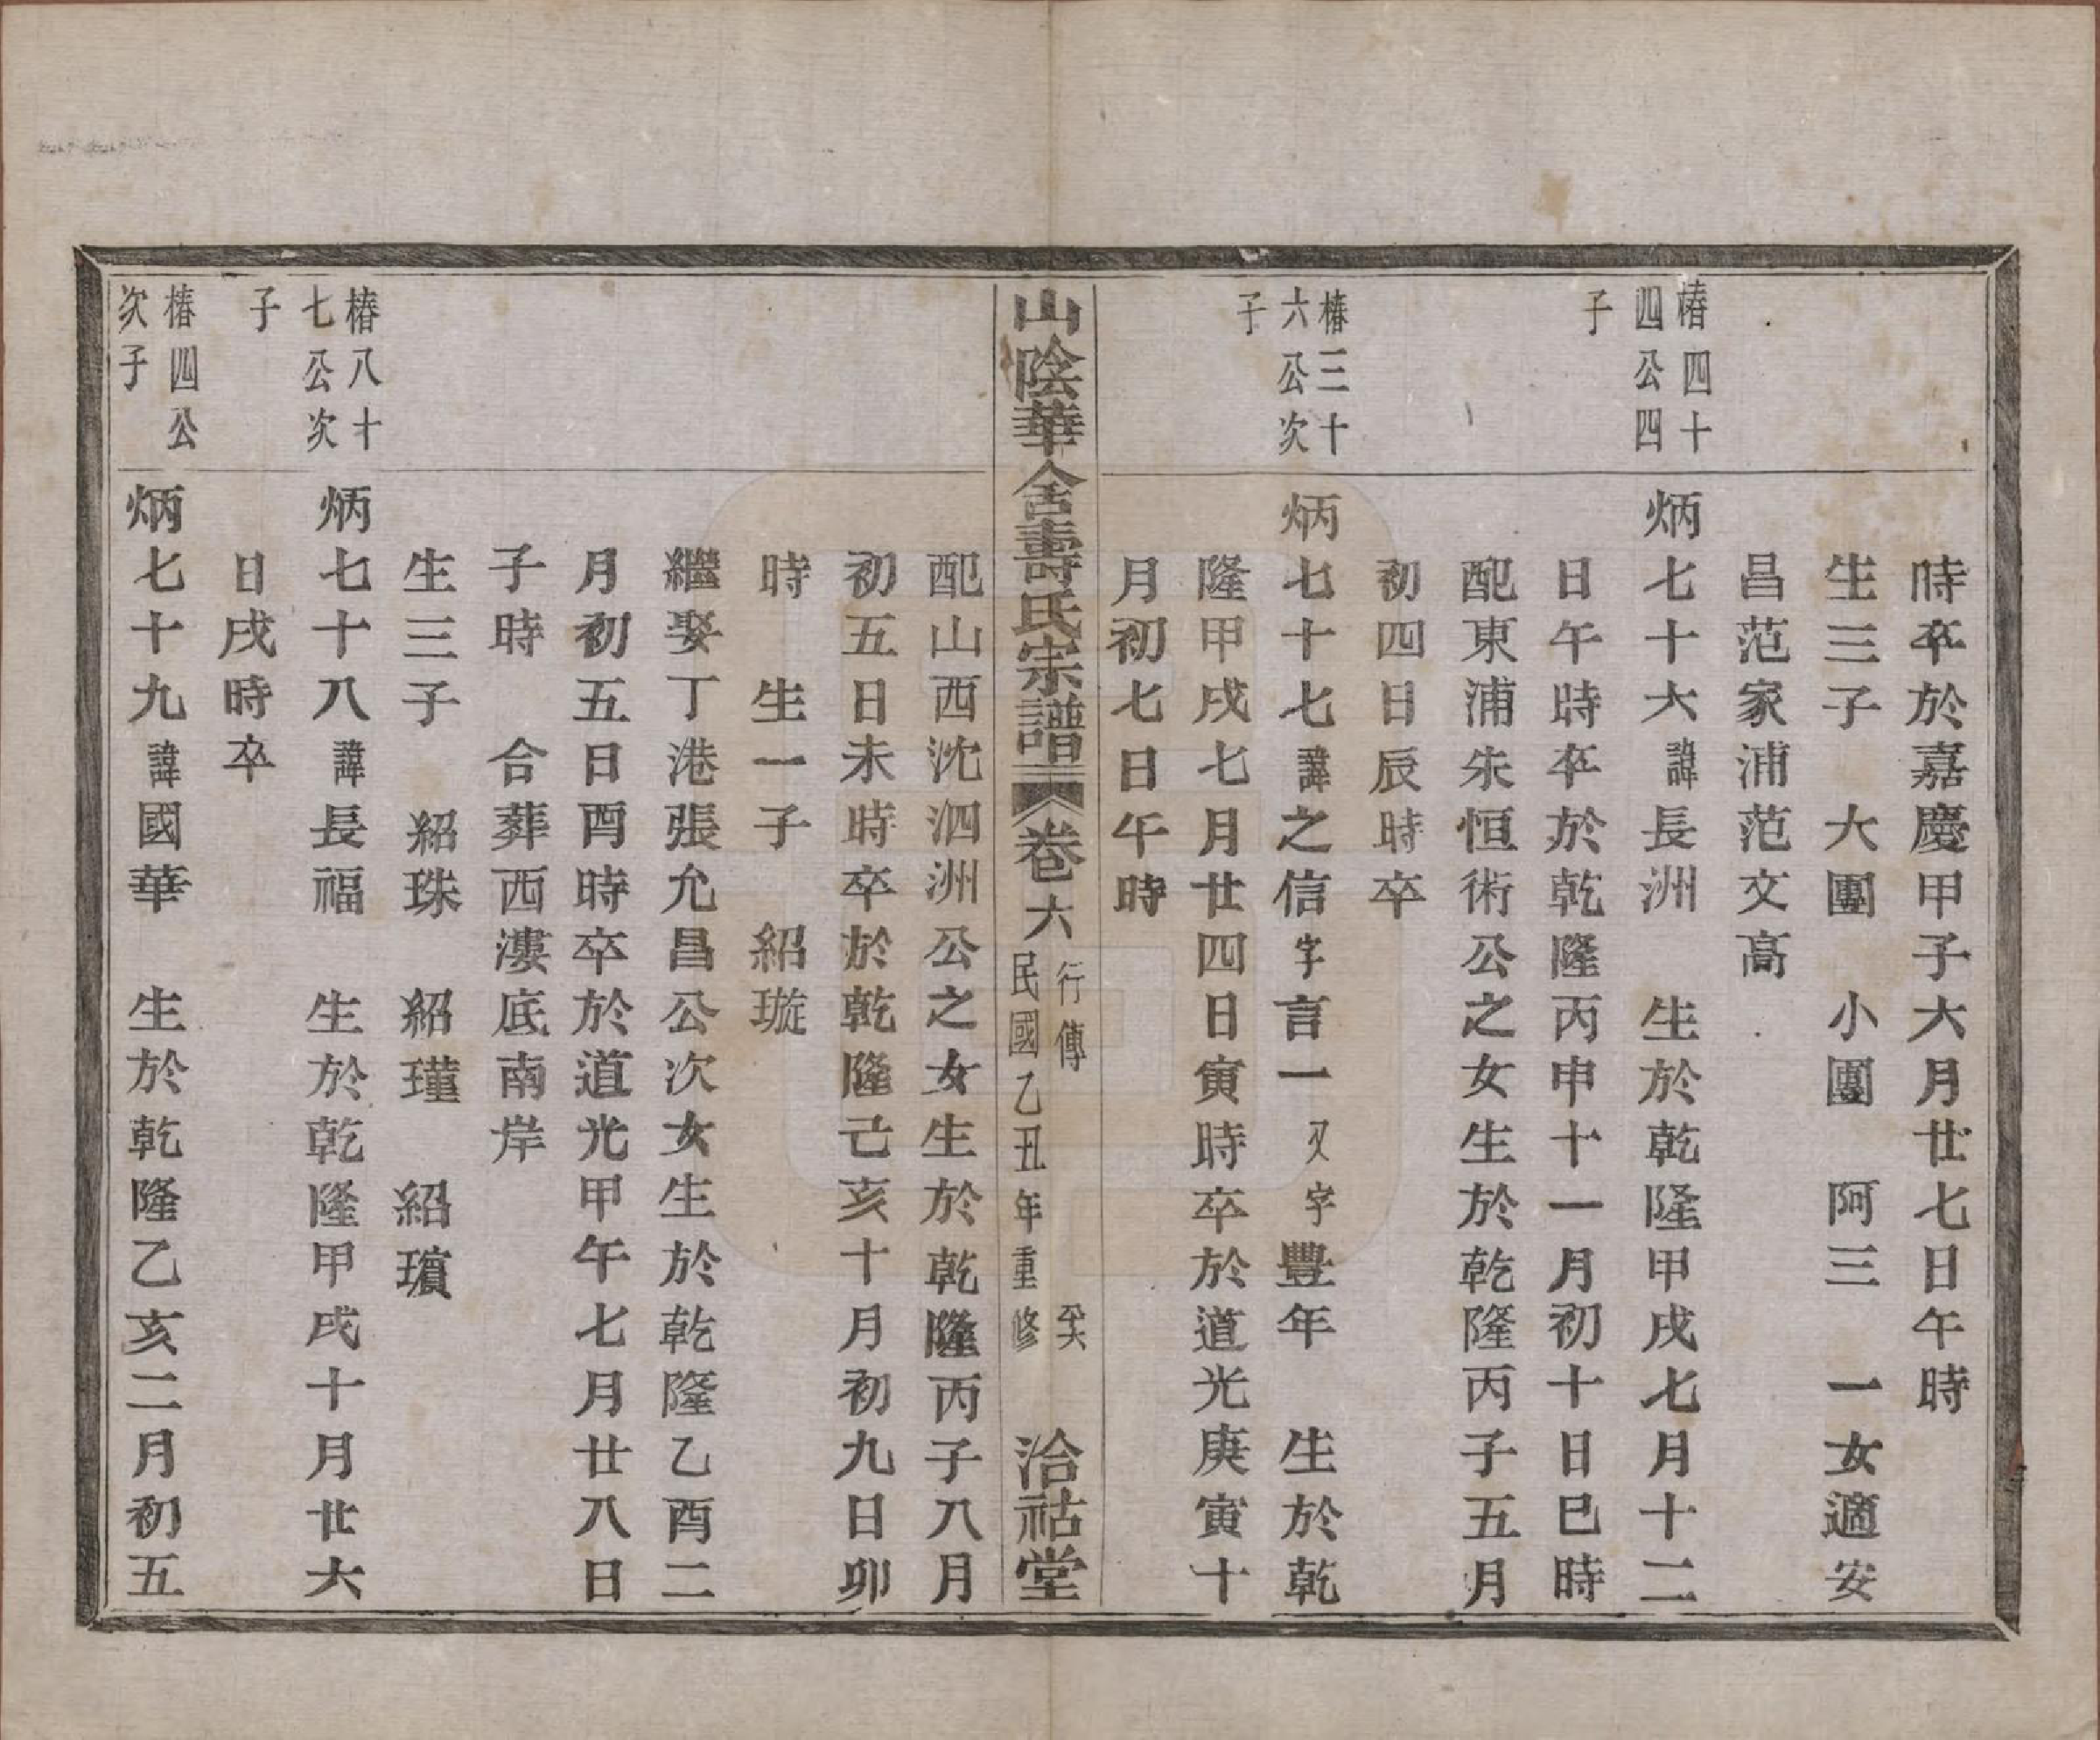 時卒於嘉慶甲子六月廿七日午時
生三子 大團 小團 阿三 一女適安
昌范家浦范文高
椿四十
四公四
子
炳七十六諱長洲 生於乾隆甲戌七月十二
日午時卒於乾隆丙申十一月初十日巳時
配東浦朱恒術公之女生於乾隆丙子五月
初四日辰時卒
椿三十
六公次
子
炳七十七諱之信字言一又字豐年 生於乾
隆甲戌七月廿四日寅時卒於道光庚寅十
月初七日午時
山陰華舍壽氏宗譜 卷六 行傳
民國乙丑年重修 洽祜堂
配山西沈泗洲公之女生於乾隆丙子八月
初五日未時卒於乾隆己亥十月初九日卯
時 生一子 紹璇
繼娶丁港張允昌公次女生於乾隆乙酉二
月初五日酉時卒於道光甲午七月廿八日
子時 合葬西漊底南岸
生三子 紹珠 紹瑾 紹璸
椿八十
七公次
子
炳七十八諱長福 生於乾隆甲戌十月廿六
日戌時卒
椿四公
次子
炳七十九諱國華 生於乾隆乙亥二月初五